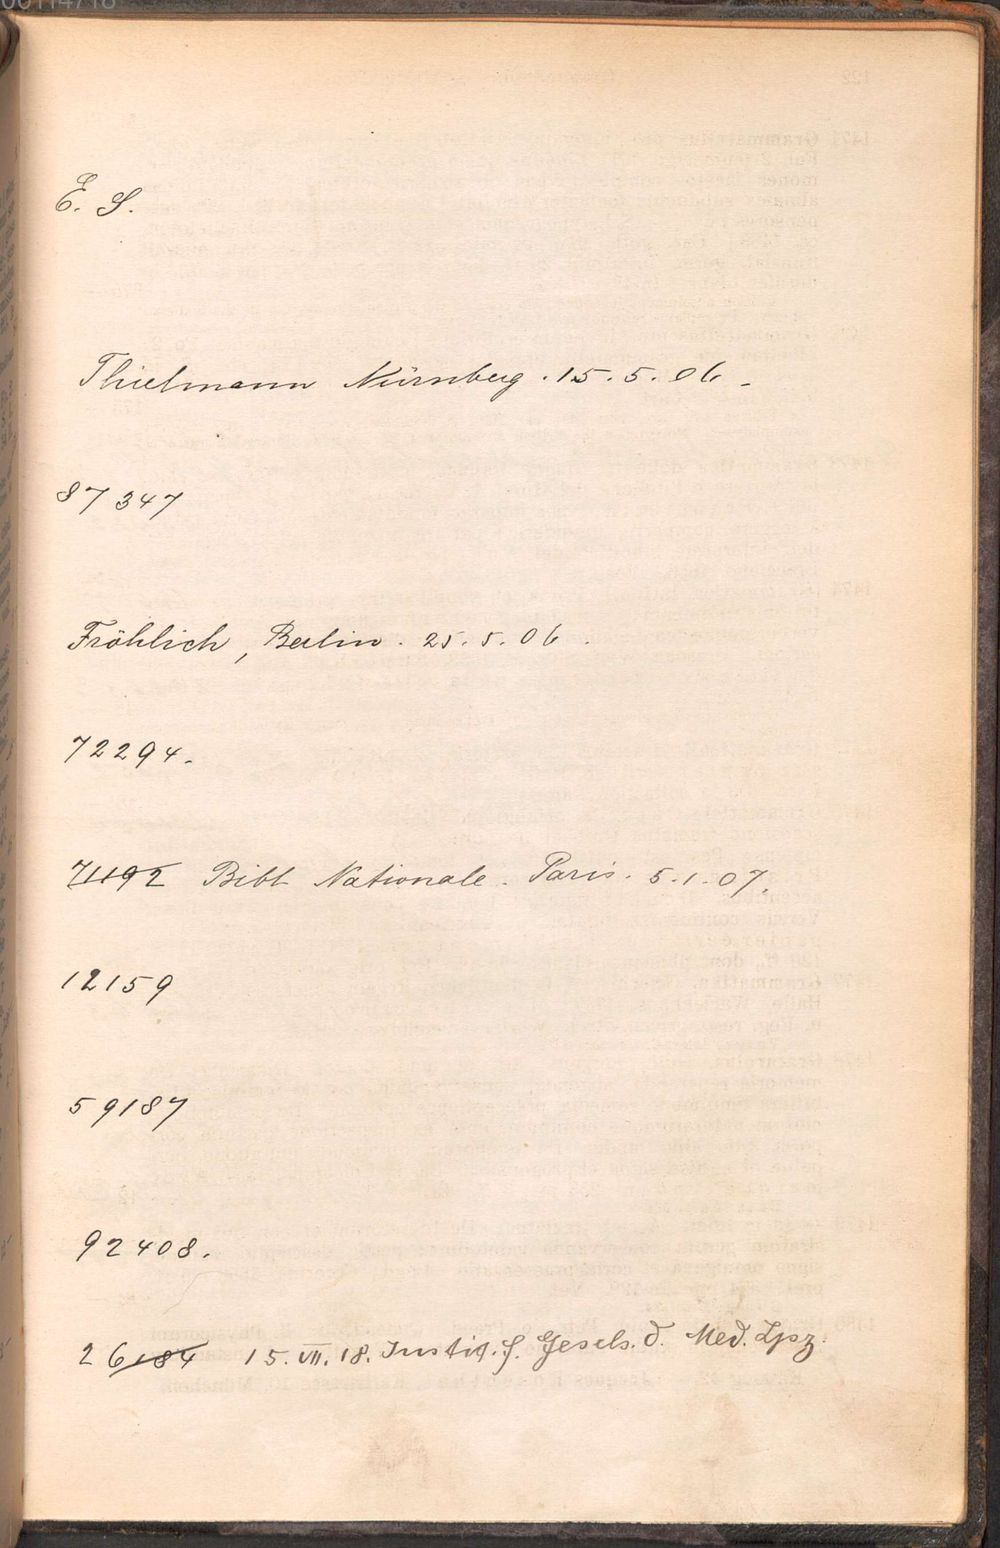 E. S.
Thielmann Nürnberg . 15. 5. 06 -
87347
Fröhlich, Berlin . 25. 5. 06 .
72294.
71192 Bibl Nationale . Paris . 5.1.07.
12159
59187
92408.
26184 15. VII. 18. Instit. f. Gesch. d. Med. Lpzg.